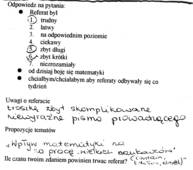 Odpowiedz na pytania:
● Referat był
1. trudny
2. łatwy
3. na odpowiednim poziomie
4. ciekawy
5. zbyt długi
6. zbyt krótki
7. niezrozumiały
● od dzisiaj boję się matematyki
● chciałbym/chciałabym aby referaty odbywały się co tydzień
Uwagi o referacie
troszkę zbyt skomplikowane
niewyraźne pismo prowadzącego
Propozycje tematów
"Wpływ matematyki na
pracę wielkich naukowców"
Ile czasu twoim zdaniem powinien trwać referat?